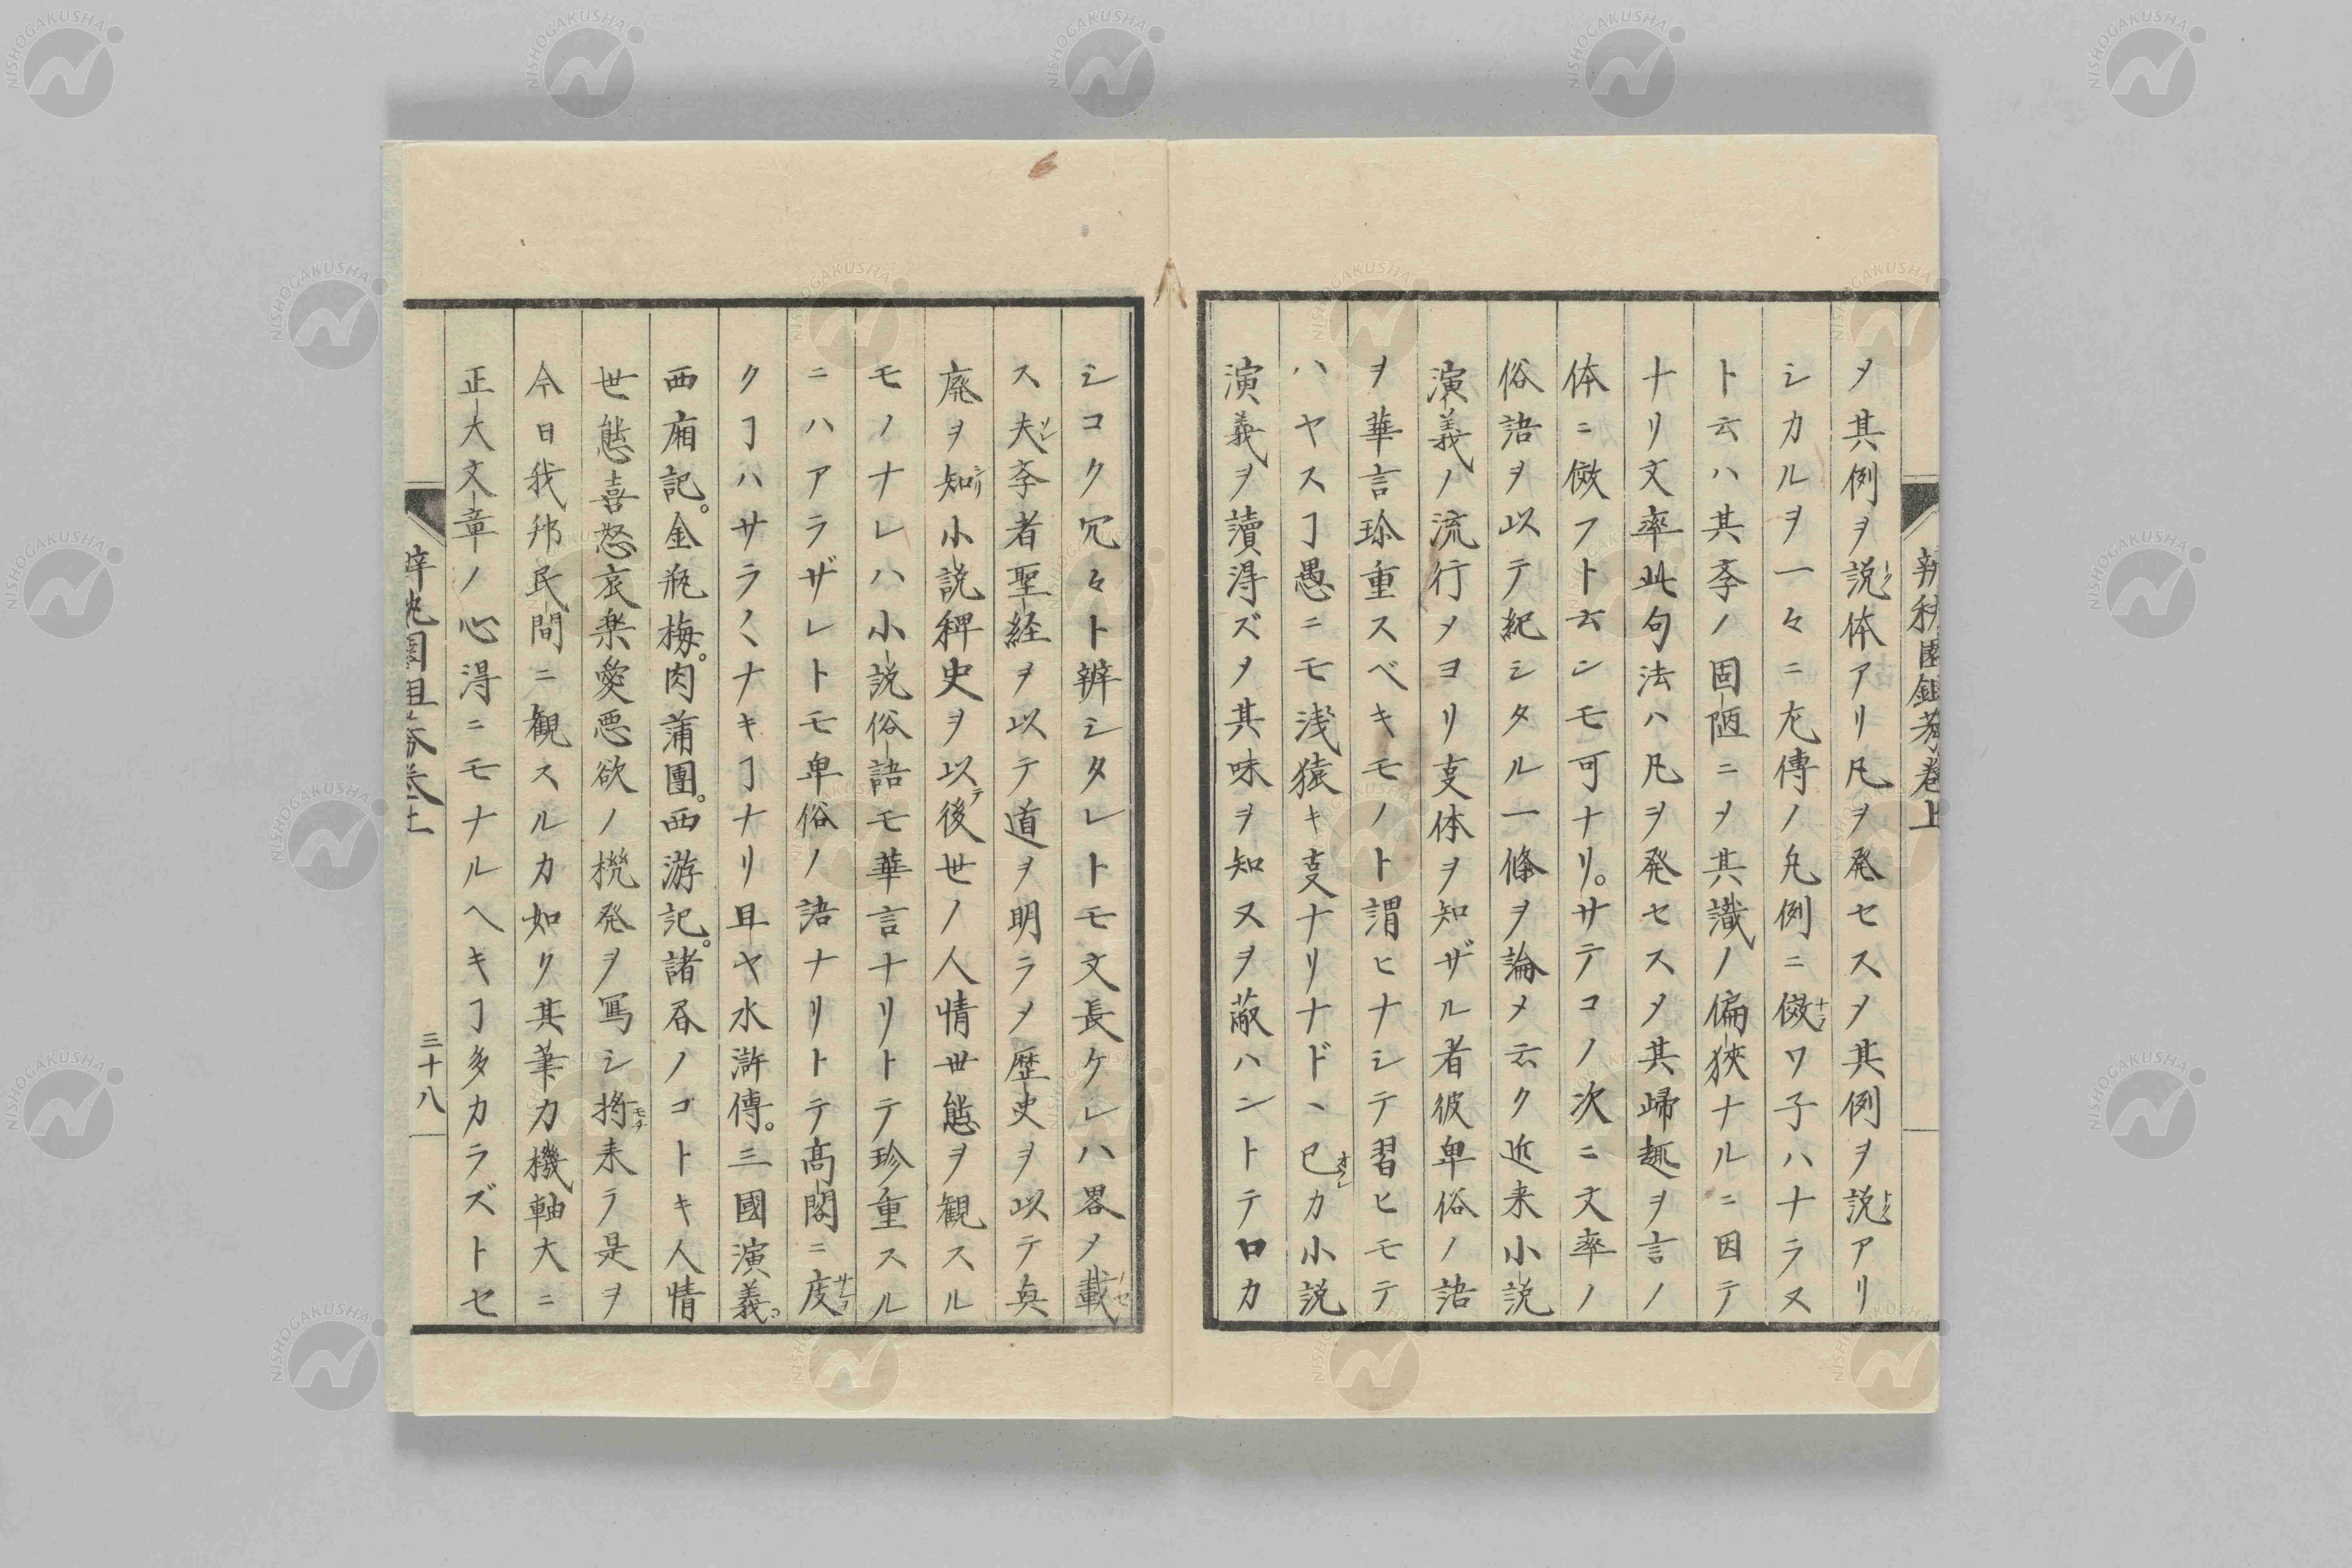 メ其例ヲ説体アリ凡ヲ発セスメ其例ヲ説アリ
シカルヲ一々ニ左傳ノ凡例ニ傚ワ子ハナラヌ
ト云ハ其斈ノ固陋ニメ其識ノ偏狹ナルニ因テ
ナリ文率此句法ハ凡ヲ発セスメ其歸趣ヲ言ノ
体ニ傚フト云ンモ可ナリ。サテコノ次ニ文率ノ
俗語ヲ以テ紀シタル一條ヲ論メ云ク近来小説
演義ノ流行メヨリ支体ヲ知ザル者彼卑俗ノ語
ヲ華言珎重スベキモノト謂ヒナシテ習ヒモテ
ハヤスヿ愚ニモ浅猿キ叓ナリナド、己カ小説
演義ヲ讀淂ズメ其味ヲ知ヌヲ蔽ハントテロカ
シコク冗々ト辨シタレトモ文長ケレハ畧メ載
ス夫斈者聖経ヲ以テ道ヲ明ラメ歴史ヲ以テ真
廃ヲ知小説稗史ヲ以後世ノ人情世態ヲ観スル
モノナレハ小説俗語モ華言ナリトテ珍重スル
ニハアラザレトモ卑俗ノ語ナリトテ髙閣ニ庋
クヿハサラ〱ナキヿナリ且ヤ水滸傳。三國演義。
西廂記。金瓶梅。肉蒲團。西游記。諸呑ノゴトキ人情
世態喜怒哀楽愛悪欲ノ機発ヲ写シ将来ラ是ヲ
今日我邦民間ニ観スルカ如ク其筆力機軸大ニ
正大文章ノ心得ニモナルヘキヿ多カラズトセ
三十八